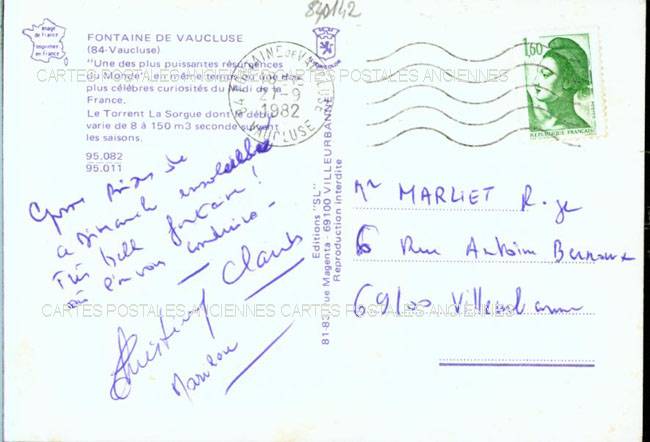 840142
Image
de France
Imprimée
en France
FONTAINE DE VAUCLUSE
(84-Vaucluse)
"Une des plus puissantes résurgences
du Monde" en même temps qu'une des
plus célèbres curiosités du Midi de la
France.
Le Torrent La Sorgue dont le débit
varie de 8 à 150 m3 seconde suivant
les saisons.
95.082
95.011
-9
1982
VAUCLUSE
1,60
REPUBLIQUE FRANÇAISE
CARTES POSTALES ANCIENNES CARTES POSTALES ANCIENNES
Editions "SL"
81-83, rue Magenta - 69100 VILLEURBANNE
Reproduction interdite
Grosses bises de
ce dimanche ensoleillé
Très belle fontaine !
où l'on vous
Claude
Mr MARLIET
6 Rue Antoine
69100 Villeurbanne
CARTES POSTALES ANCIENNES CARTES POSTALES ANCIENNES